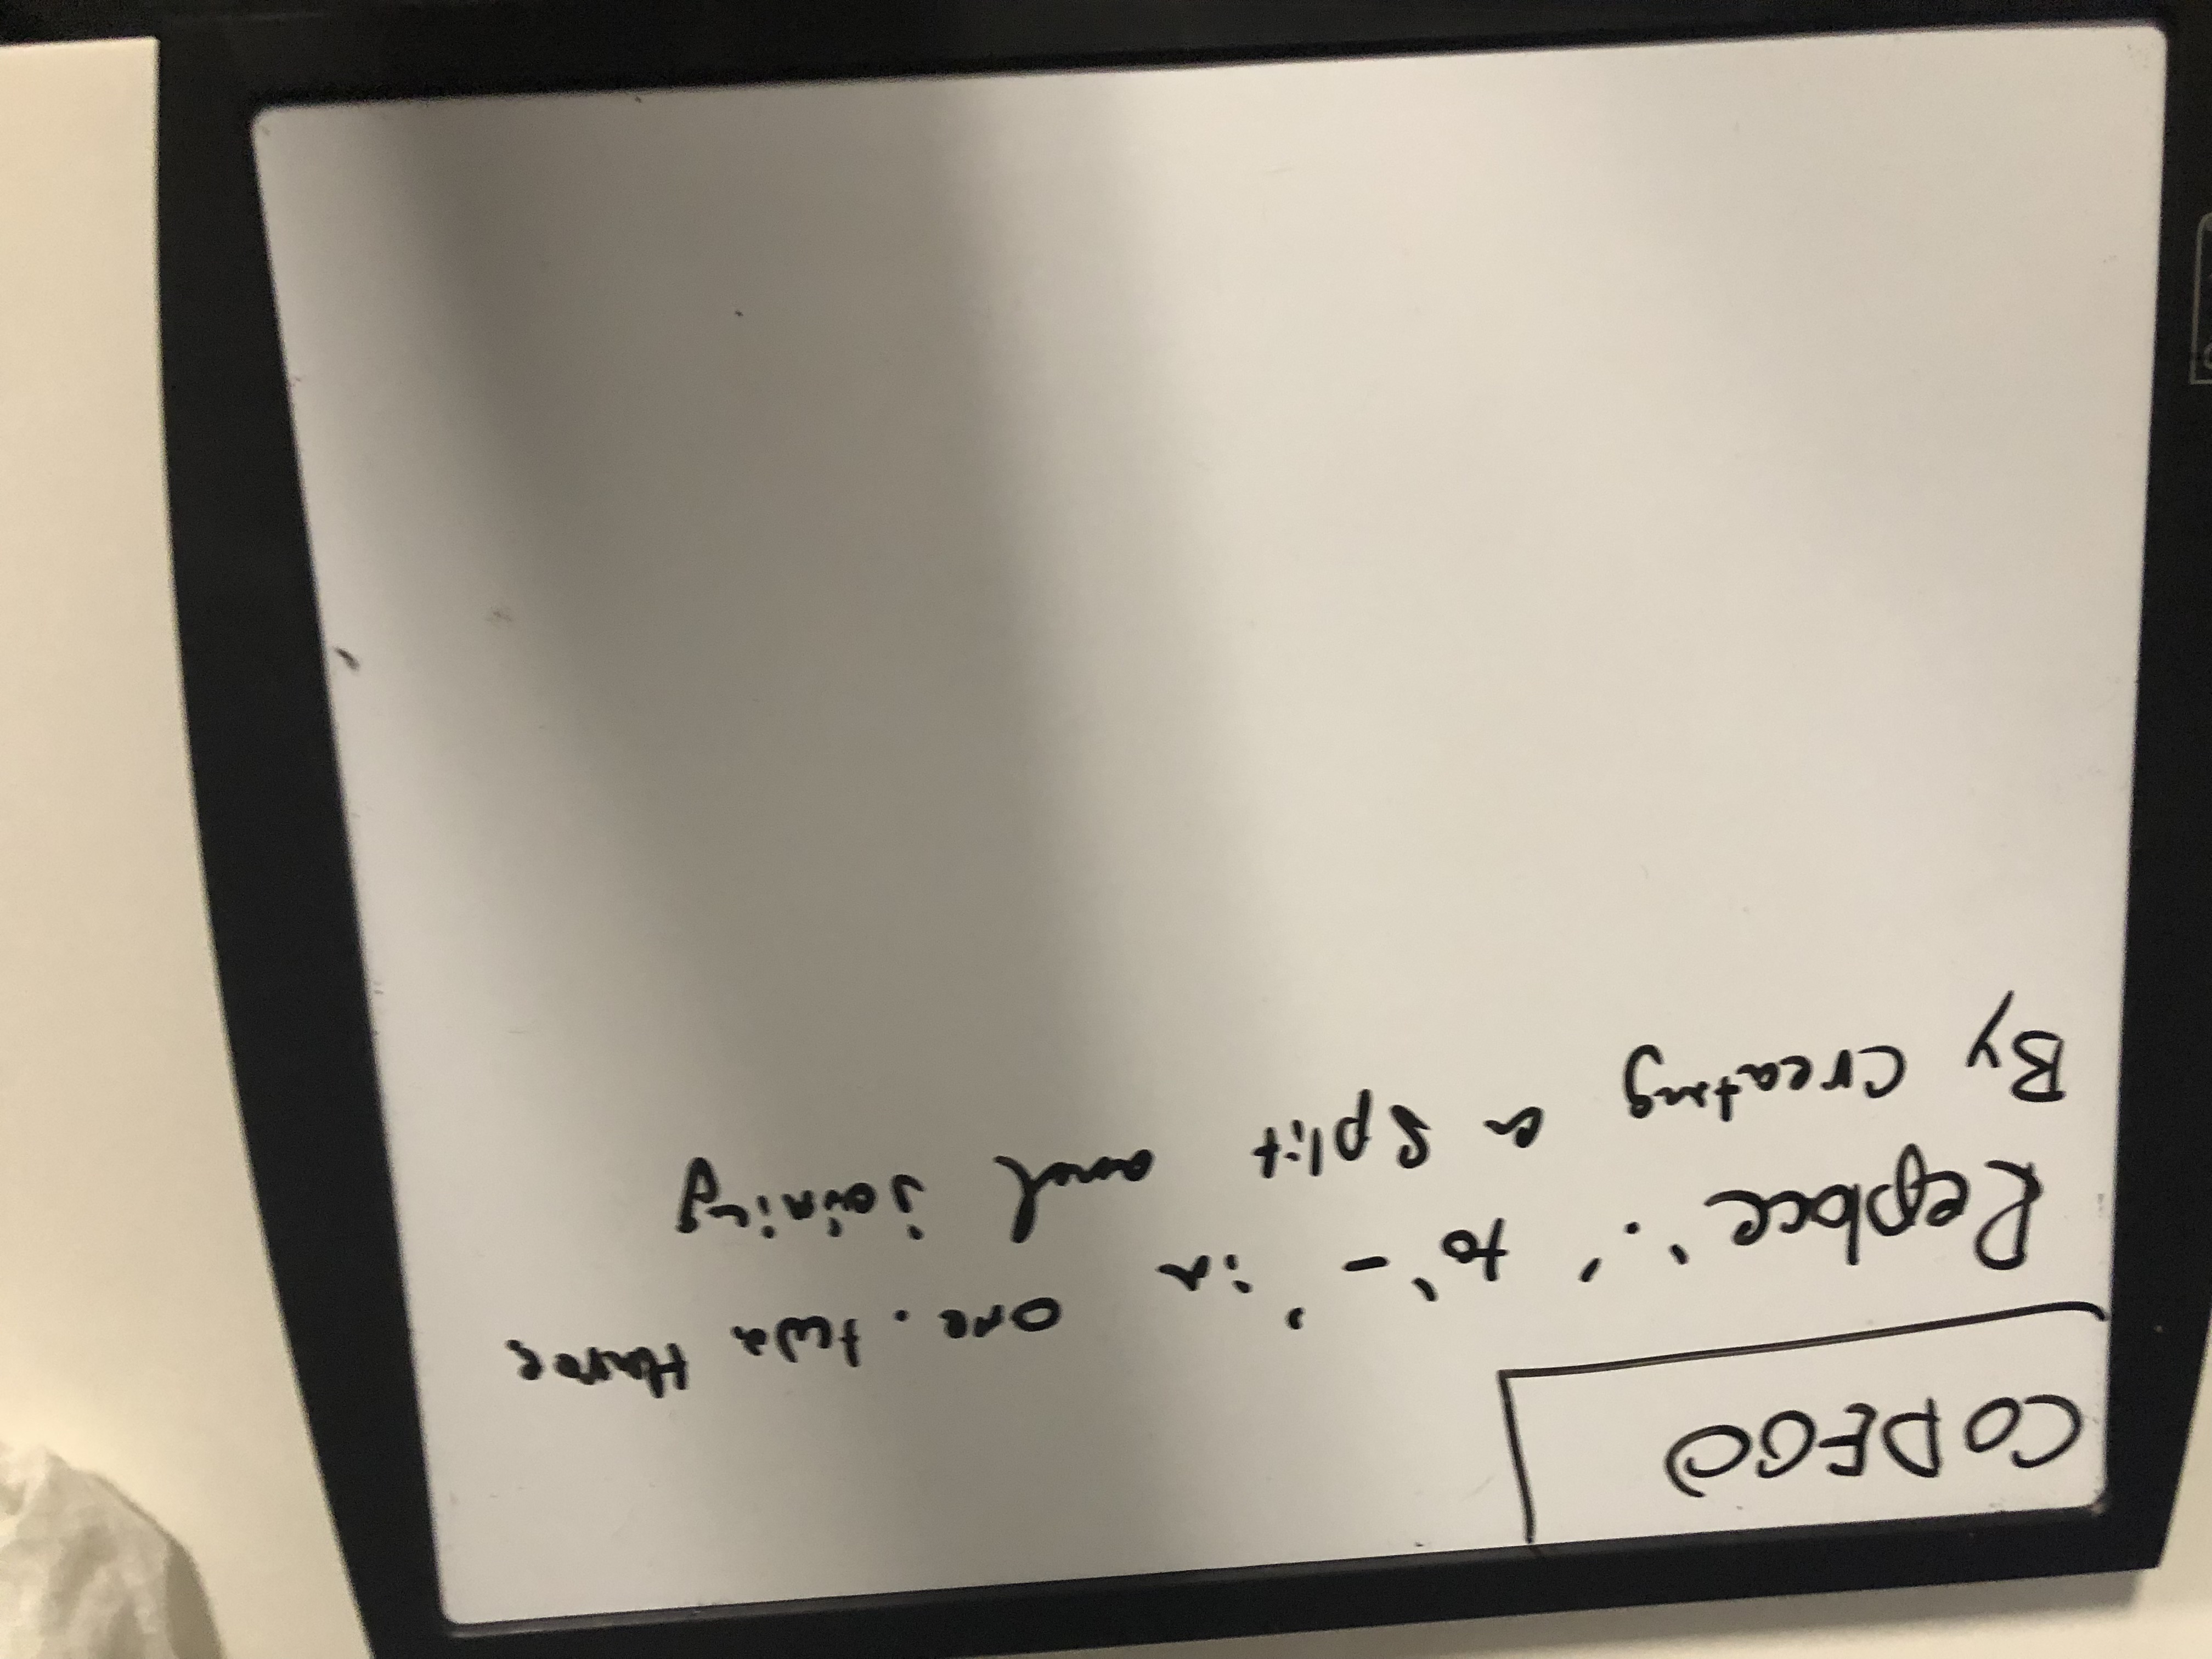 CODEGO
Replace '.' to '-' in one. two three
By creating a split and joining